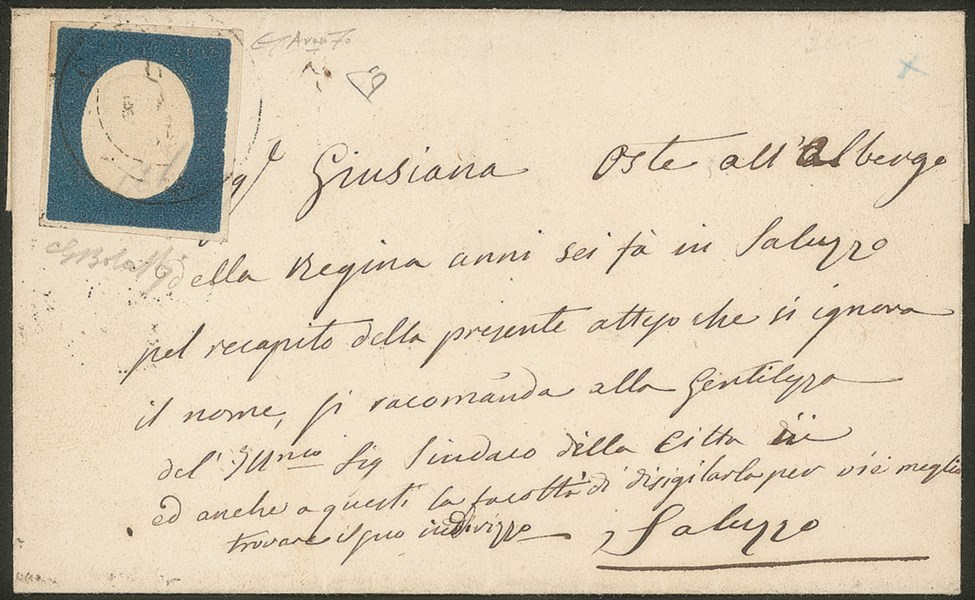 Giusiana Oste all'albergo
della Regina anni sei fà in Saluzzo
pel recapito della presente atteso che si ignora
il nome, si racomanda alla Gentilezza
del' Illmo Sig Sindaco della Citta di
ed anche a questi la facoltà di disigilarla per vie meglio
trovare il suo indirizzo
Saluzzo